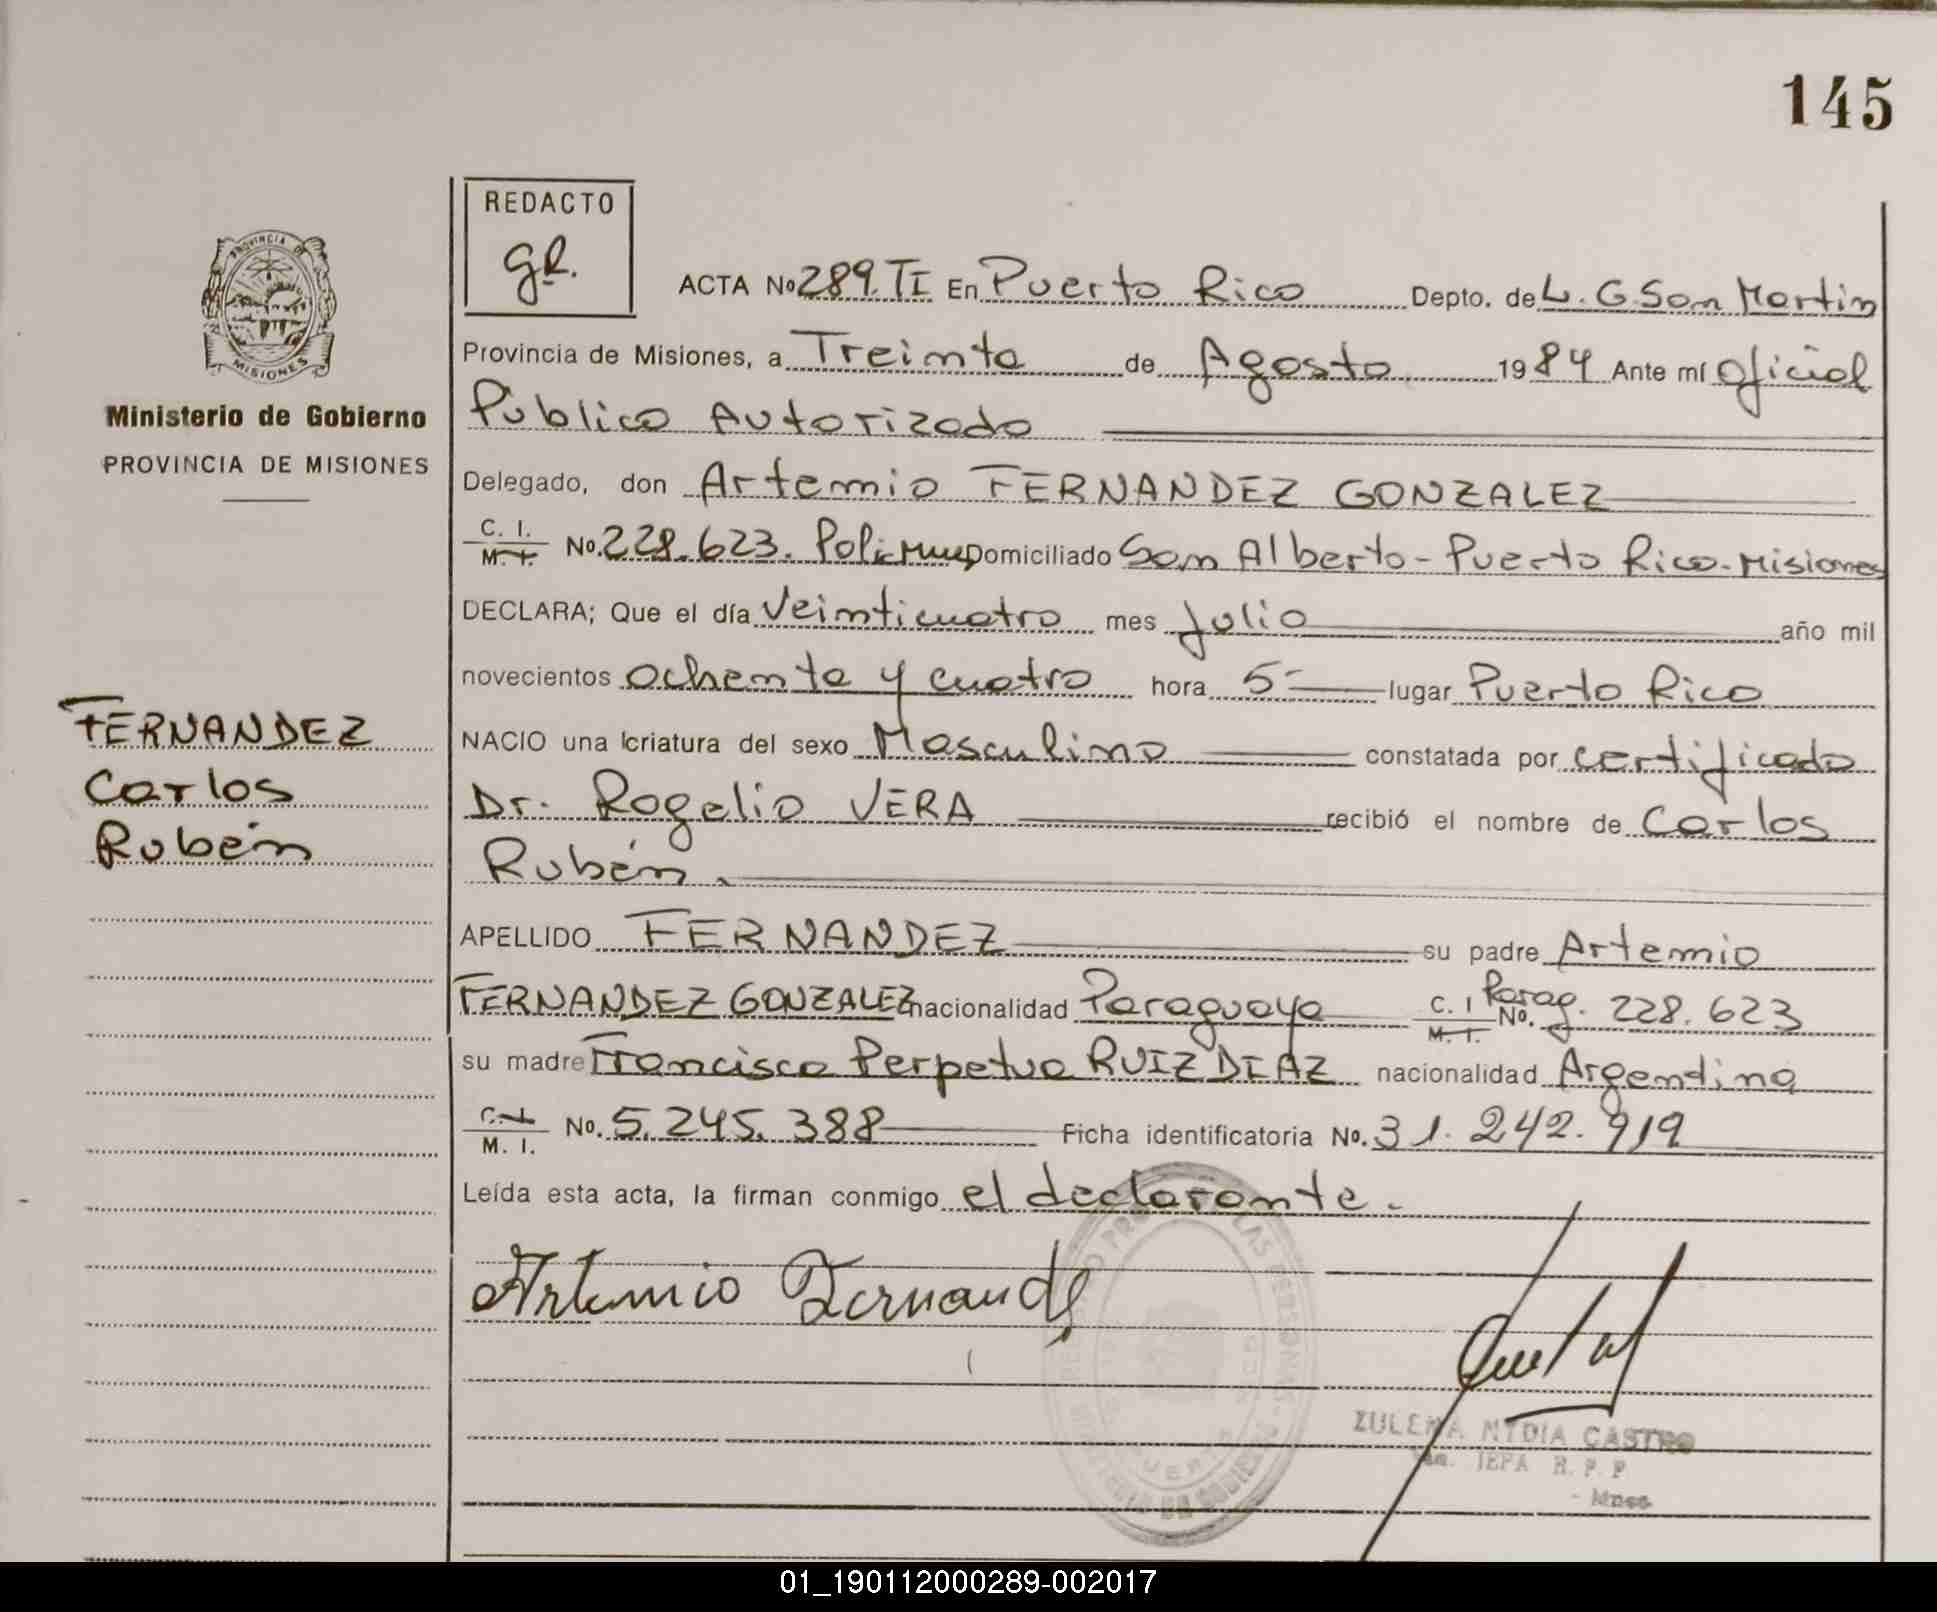 145
REDACTO
gR.
PROVINCIA DE
MISIONES
Ministerio de Gobierno
PROVINCIA DE MISIONES
FERNANDEZ
Carlos
Rubén
ACTA No 289. TI En Puerto Rico Depto. de L. G. San Martin
Provincia de Misiones, a Treinta de Agosto 1984 Ante mí Oficial
Público Autorizado
Delegado, don Artemio FERNANDEZ GONZALEZ
C. I. M. I. No. 228.623. Domiciliado San Alberto - Puerto Rico - Misiones
DECLARA; Que el día Veinticuatro mes Julio año mil
novecientos ochenta y cuatro hora 5- lugar Puerto Rico
NACIO una criatura del sexo Masculino constatada por certificado
Dr. Rogelio VERA recibió el nombre de Carlos
Rubén.
APELLIDO FERNANDEZ su padre Artemio
FERNANDEZ GONZALEZ nacionalidad Paraguaya C. I M. I. No. Parag. 228.623
su madre Francisca Perpetua RUIZ DIAZ nacionalidad Argentina
C. I. M. I. No. 5.245.388 Ficha identificatoria No. 31.242.919
Leída esta acta, la firman conmigo el declarante.
Artemio Fernandez
ZULEMA NYDIA CASTRO
JEFA R. P. P
Mnes
01_190112000289-002017